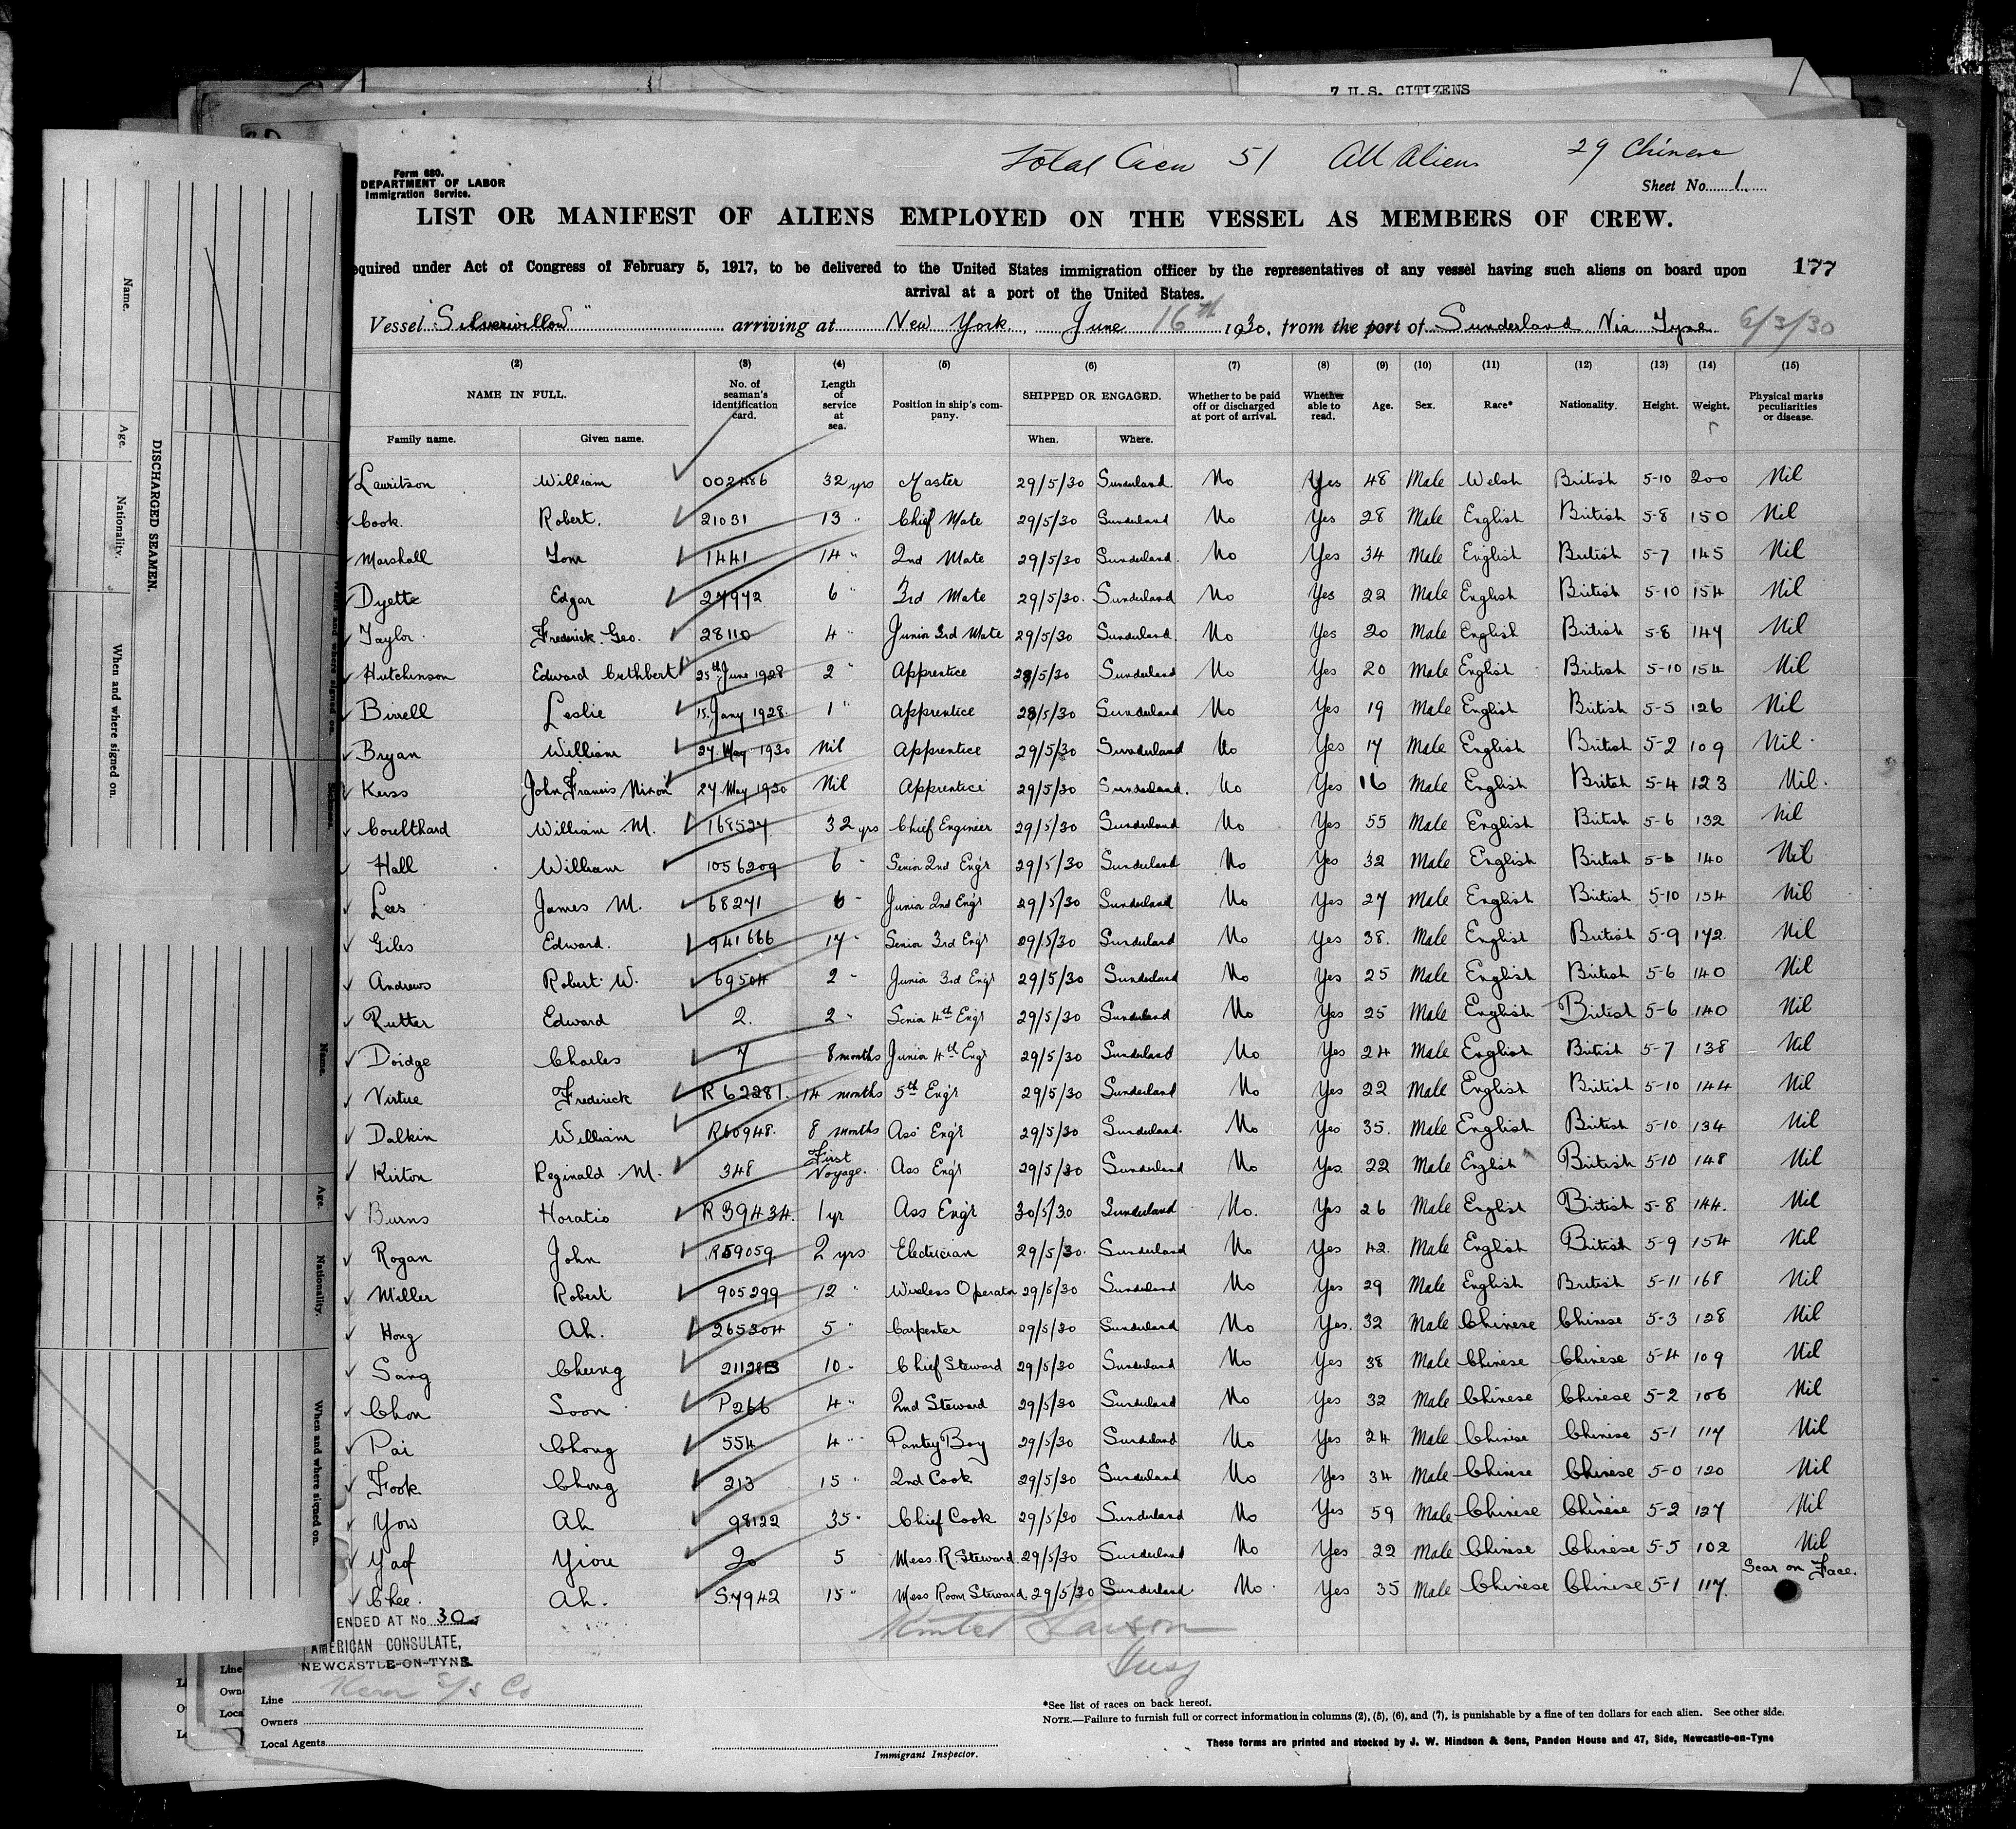 7 U.S. CITIZENS
Total Crew 51 All Aliens 29 Chinese
Form 680.
DEPARTMENT OF LABOR
Immigration Service.
Sheet No. 1.
LIST OR MANIFEST OF ALIENS EMPLOYED ON THE VESSEL AS MEMBERS OF CREW.
equired under Act of Congress of February 5, 1917, to be delivered to the United States immigration officer by the representatives of any vessel having such aliens on board upon
arrival at a port of the United States.
177
Vessel "Silverwillow" arriving at New York, June 16th 1930, from the port of Sunderland Via Tyne 6/3/30
(2) (3) (4) (5) (6) (7) (8) (9) (10) (11) (12) (13) (14) (15)
NAME IN FULL. No. of seaman's identification card. Length of service at sea. Position in ship's company. SHIPPED OR ENGAGED. Whether to be paid off or discharged at port of arrival. Whether able to read. Age. Sex. Race* Nationality. Height. Weight. Physical marks peculiarities or disease.
Family name. Given name. When. Where.
Lauritson William 002486 32 yrs Master 29/5/30 Sunderland No Yes 48 Male Welsh British 5-10 200 Nil
Cook. Robert. 21031 13 " Chief Mate 29/5/30 Sunderland No Yes 28 Male English British 5-8 150 Nil
Marshall Tom 1441 14 " 2nd Mate 29/5/30 Sunderland. No Yes 34 Male English British 5-7 145 Nil
Dyette Edgar 27972 6 " 3rd Mate 29/5/30. Sunderland No Yes 22 Male English British 5-10 154 Nil
Taylor Frederick Geo. 28110 4 " Junior 3rd Mate 29/5/30 Sunderland. No Yes 20 Male English British 5-8 147 Nil
Hutchinson Edward Cuthbert 25th June 1928 2 " Apprentice 29/5/30 Sunderland No Yes 20 Male English British 5-10 154 Nil
Birrell Leslie 15. Jany 1928. 1 " Apprentice 29/5/30 Sunderland No Yes 19 Male English British 5-5 126 Nil
Bryan William 27. May 1930 Nil Apprentice 29/5/30 Sunderland No Yes 17 Male English British 5-2 109 Nil.
Kerss John Francis Nixon 27 May 1930 Nil Apprentice 29/5/30 Sunderland. No Yes 16 Male English British 5-4 123 Nil.
Coulthard William M. 168527 32 yrs Chief Engineer 29/5/30 Sunderland No Yes 55 Male English British 5-6 132 Nil
Hall William 1056209 6 " Senior 2nd Eng'r 29/5/30 Sunderland No Yes 32 Male English British 5-6 140 Nil
Lees James M. 68271 6 " Junior 2nd Eng'r 29/5/30 Sunderland No Yes 27 Male English British 5-10 154 Nil
Giles Edward. 941666 17 " Senior 3rd Eng'r 29/5/30 Sunderland No Yes 38. Male English British 5-9 172. Nil
Andrews Robert W. 69504 2 " Junior 3rd Eng'r 29/5/30 Sunderland No Yes 25 Male English British 5-6 140 Nil
Rutter Edward 2. 2 " Senior 4th Eng'r 29/5/30 Sunderland No Yes 25 Male English British 5-6 140 Nil
Doidge Charles 7 8 months Junior 4th Eng'r 29/5/30 Sunderland No Yes 24 Male English British 5-7 138 Nil
Virtue Frederick R 62281. 14 months 5th Eng'r 29/5/30 Sunderland No Yes 22 Male English British 5-10 144 Nil
Dalkin William R60948. 8 months Ass Eng'r 29/5/30 Sunderland. No Yes 35. Male English British 5-10 134 Nil
Kirton Reginald M. 348 First Voyage. Ass Eng'r 29/5/30 Sunderland No Yes. 22 Male English British 5-10 148 Nil
Burns Horatio R 39434. 1 yr Ass Eng'r 30/5/30 Sunderland No. Yes 26 Male English British 5-8 144. Nil
Rogan John R59059 2 yrs Electrician 29/5/30. Sunderland No Yes 42. Male English British 5-9 154 Nil
Miller Robert 905299 12 " Wireless Operator 29/5/30 Sunderland No Yes 29 Male English British 5-11 168 Nil
Hong Ah. 265304 5 " Carpenter 29/5/30 Sunderland No Yes. 32 Male Chinese Chinese 5-3 128 Nil
Sang Cheung 211283 10 " Chief Steward 29/5/30 Sunderland No Yes 38 Male Chinese Chinese 5-4 109 Nil
Chon Soon P266 4 " 2nd Steward 29/5/30 Sunderland No Yes 32 Male Chinese Chinese 5-2 106 Nil
Pai Chong 554 4 " Pantry Boy 29/5/30 Sunderland No Yes 24 Male Chinese Chinese 5-1 117 Nil
Fook Chong 213 15 " 2nd Cook 29/5/30 Sunderland No Yes 34 Male Chinese Chinese 5-0 120 Nil
Yow Ah 98122 35 " Chief Cook 29/5/30 Sunderland No Yes 59 Male Chinese Chinese 5-2 127 Nil
Yaf Yiou 20 5 Mess. R. Steward 29/5/30 Sunderland No Yes 22 Male Chinese Chinese 5-5 102 Nil
Chee Ah. 57942 15 " Mess Room Steward 29/5/30 Sunderland No Yes 35 Male Chinese Chinese 5-1 117. Scar on Face.
ENDED AT No. 30
AMERICAN CONSULATE,
NEWCASTLE-ON-TYNE.
Line Kerr S/S Co
Owners
Local Agents
Immigrant Inspector.
*See list of races on back hereof.
NOTE.—Failure to furnish full or correct information in columns (2), (5), (6), and (7), is punishable by a fine of ten dollars for each alien. See other side.
These forms are printed and stocked by J. W. Hindson & Sons, Pandon House and 47, Side, Newcastle-on-Tyne
DISCHARGED SEAMEN.
Name. Age. Nationality. When and where signed on.
Name. Age. Nationality. When and where signed on.